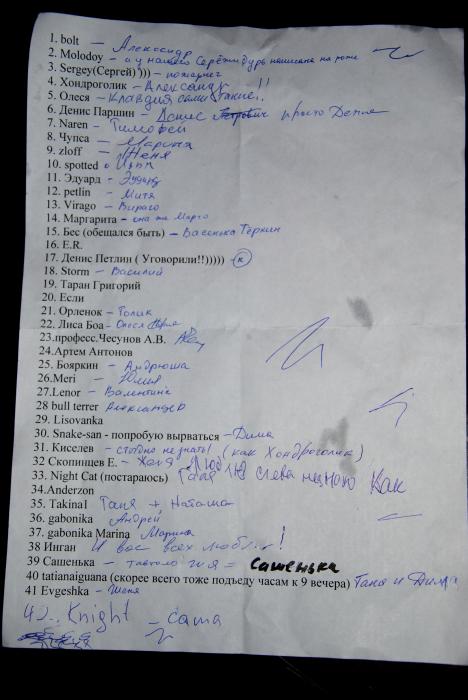 1. bolt — Александр
2. Molodoy — а у нашего Серёжи дурь написана на роже
3. Sergey(Сергей) ))) — пожарнег
4. Хондроголик — Александр!!
5. Олеся — Клавдия
6. Денис Паршин — Денис просто Деня
7. Naren — Тимофей
8. Чупса — Марина
9. zloff — Женя
10. spotted
11. Эдуард — Эдуард
12. petlin — Митя
13. Virago — Вираго
14. Маргарита — она же Марго
15. Бес (обещался быть) — Васенька Тёркин
16. E.R.
17. Денис Петлин ( Уговорили!!))))) — к
18. Storm — Василий
19. Таран Григорий
20. Если
21. Орленок — Толик
22. Лиса Боа — Олеся
23.професс.Чесунов А.В.
24.Артем Антонов
25. Бояркин — Андрюша
26.Meri — Юлия
27.Lenor — Валентина
28 bull terrer Александр
29. Lisovanka
30. Snake-san - попробую вырваться — Дима
31. Киселев — стыдно не знать! (как Хондроголика)
32 Скопинцев Е. — Женя
33. Night Cat (постараюсь) слева немного Как
34.Anderzon
35. Takina1 Таня + Наташа
36. gabonika Андрей
37. gabonika Marina Марина
38 Инган И вас всех люблю!
39 Сашенька — = Сашенька
40 tatianaiguana (скорее всего тоже подъеду часам к 9 вечера) Таня и Дима
41 Evgeshka — Женя
42. Knight — Саша